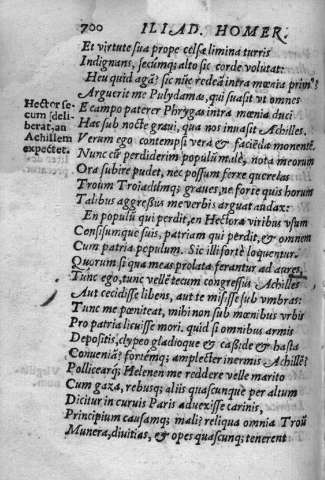 700 ILIAD. HOMER.
Et virtute sua prope celsæ limina turris
Indignans, secumq; alto sic corde volutat:
Heu quid agã? sic nũc redeã intra mœnia
Arguerit me Pulydama, qui suasit vt omnes
E campo paterer Phrygas intra mœnia duci
Hac sub nocte gravi, qua nos inuasit Achilles.
Verum ego contempsi verã & faciẽda monentẽ.
Nunc cũ perdiderim populũ malè, nota meorum
Ora subire pudet, nec possum ferre querelas
Troũm Troiadũmq; graues, ne forte quis horum
Talibus aggressus me verbis arguat audax:
En populũ qui perdit, en Hectora viribus vsum
Consisumque suis, patriam qui perdit, & omnem
Cum patria populum. Sic illi fortè loquentur.
Quorum si qua meas prolata ferantur ad aures,
Tunc ego, tunc vellẽ tecum congressus Achilles
Aut cecidisse libens, aut te misisse sub vmbras:
Tunc me pœniteat, mihi non sub mœnibus vrbis
Pro patria licuisse mori. quid si omnibus armis
Depositis, clypeo gladioque & casside & hasta
Conueniã? fortẽmq; amplecter inermis Achillẽ?
Pollicearq; Helenen me reddere velle marito
Cum gaza, rebusq; aliis quascunque per altum
Dicitur in curuis Paris aduexisse carinis,
Principium causamq; mali? reliqua omnia Troũ
Munera, diuitias, & opes quascunq; tenerent
Hector se-
cum deli-
berat, an
Achillem
expectet.